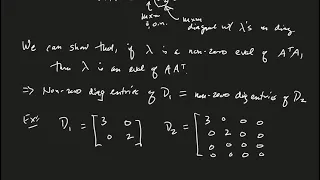 mxm
G.O.M.
mxm
diagonal w/ λ's on diag
We can show that, if λ is a non-zero eval of AᵀA,
then λ is an eval of AAᵀ.
⇒ Non-zero diag entries of D₁ = non-zero diag entries of D₂
Ex: D₁ = [3 0 D₂ = [3 0 0 0
0 2] 0 2 0 0
0 0 0 0
0 0 0 0]